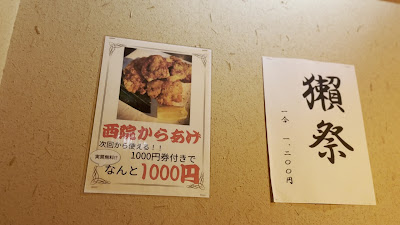 西院からあげ
次回から使える！！
実質無料!?
1000円券付きで
なんと1000円
獺祭
一合 一、二〇〇円